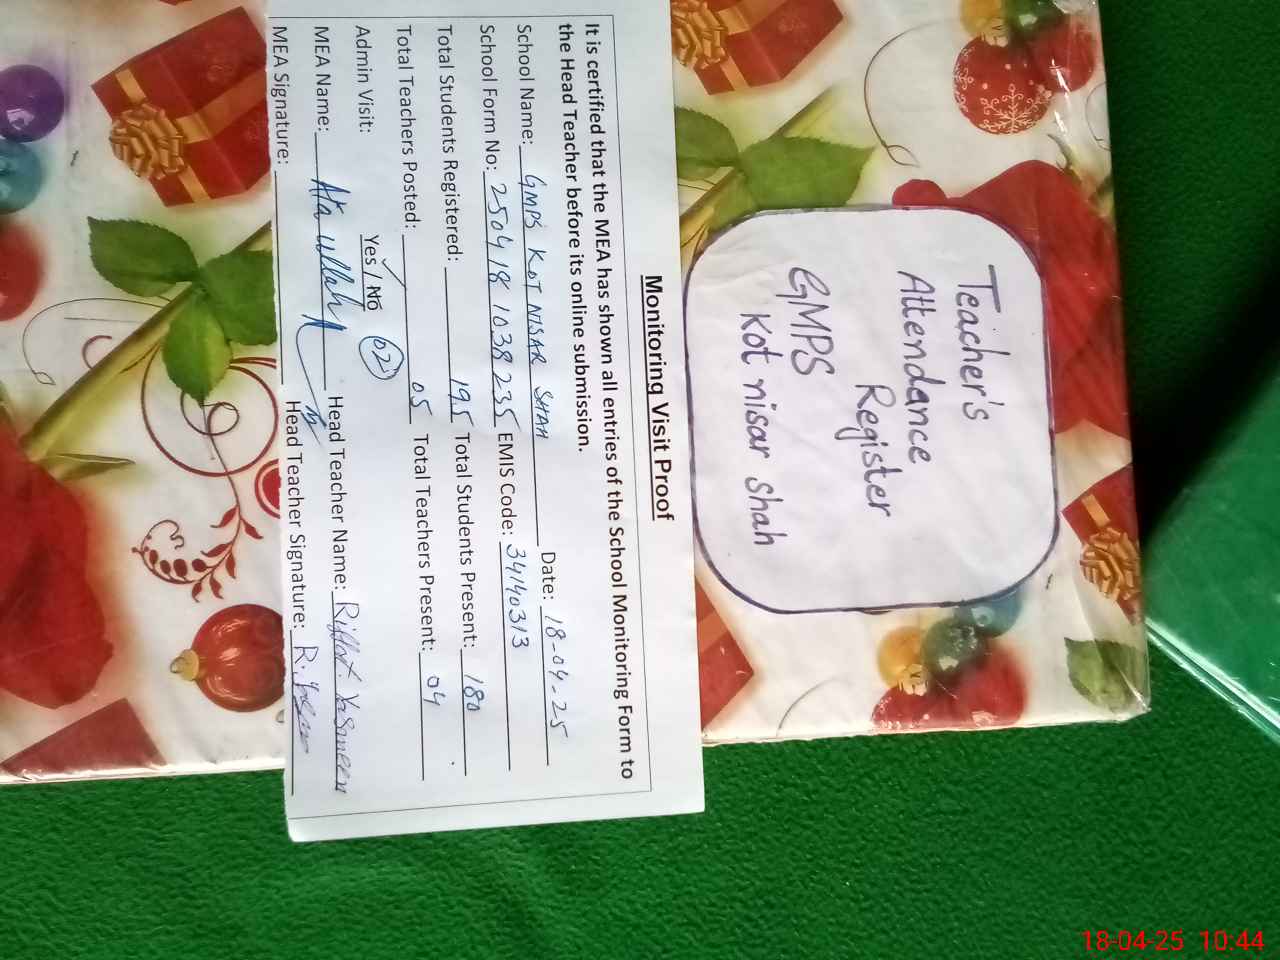 Teacher's
Attendance
Register
GMPS
Kot nisar shah
Monitoring Visit Proof
It is certified that the MEA has shown all entries of the School Monitoring Form to
the Head Teacher before its online submission.
School Name: GMPS KOT NISAR SHAH Date: 18-04-25
School Form No: 250418 1038 235 EMIS Code: 34140313
Total Students Registered: 195 Total Students Present: 180
Total Teachers Posted: 05 Total Teachers Present: 04
Admin Visit: Yes / No 02
MEA Name: Ata ullah Head Teacher Name: Riffat Yasmeen
MEA Signature: Head Teacher Signature: R.
18-04-25 10:44